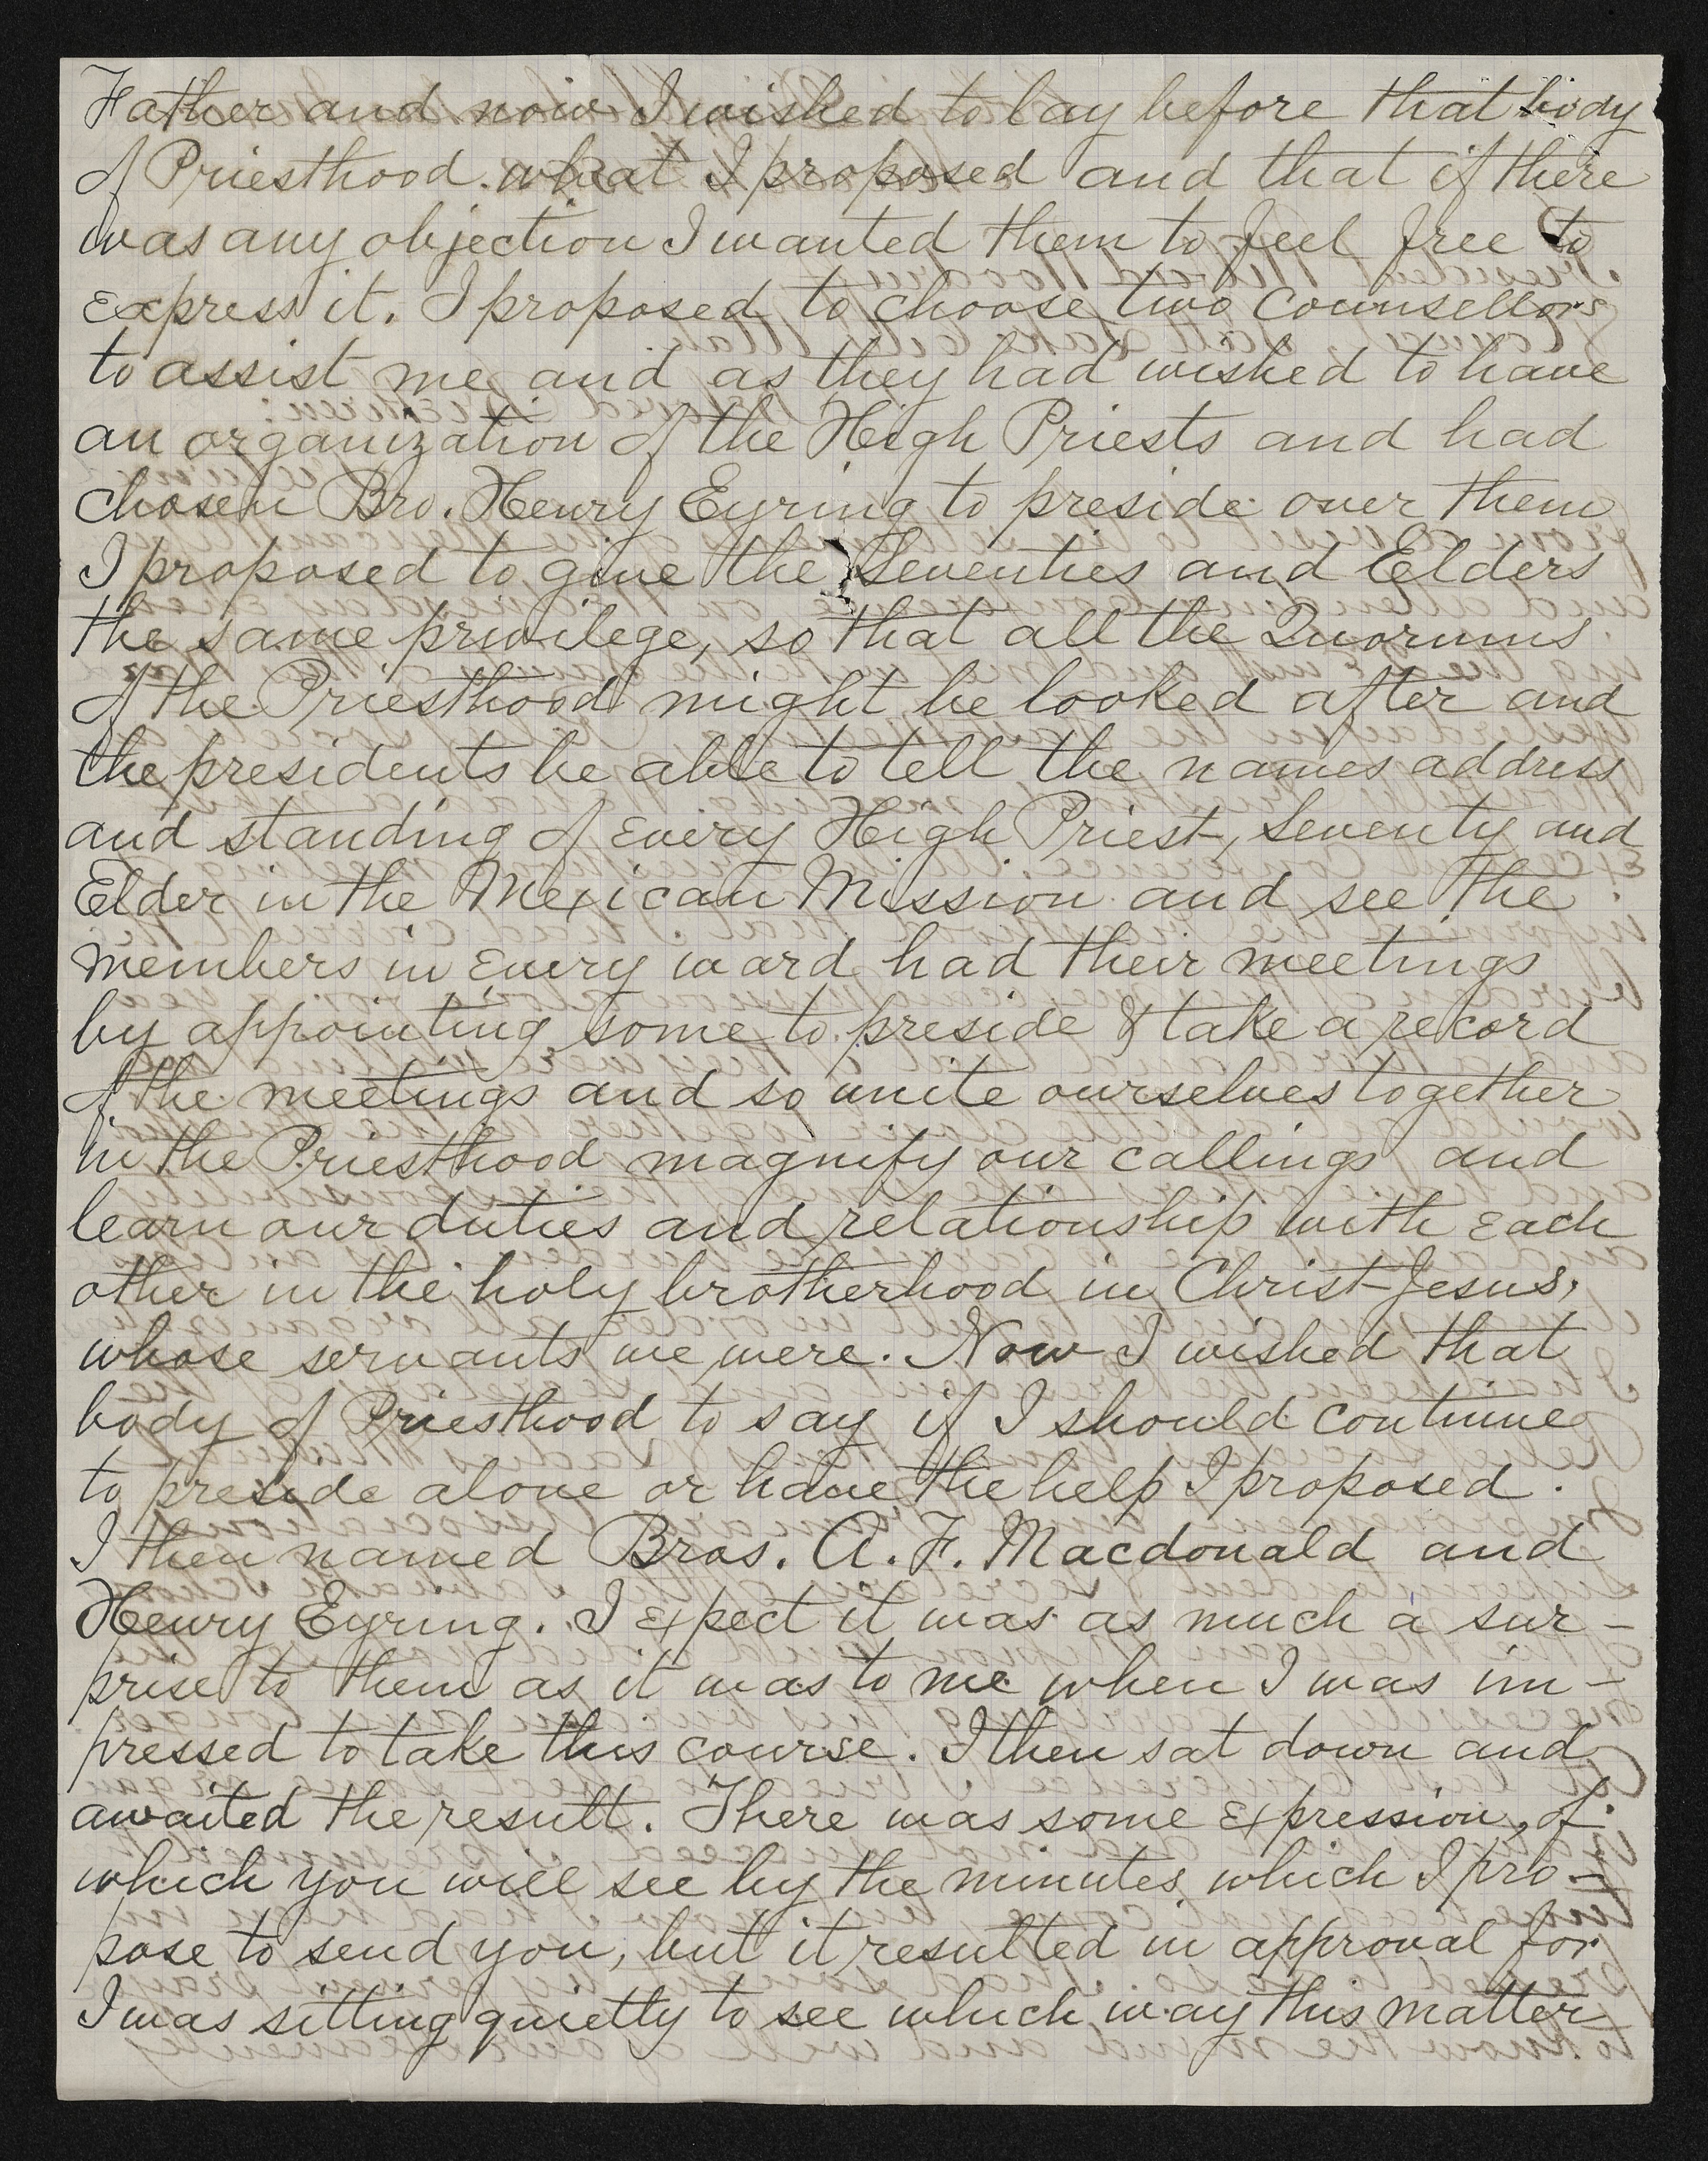 Father and now I wished to lay before that body
of Priesthood what I proposed and that if there
was any objection I wanted them to feel free to
express it. I proposed to choose two counsellors
to assist me and as they had wished to have
an organization of the High Priests and had
chosen Bro. Henry Eyring to preside over them
I proposed to give the Seventies and Elders
the same privilege, so that all the Quorums
of the Priesthood might be looked after and
the presidents be able to tell the names address
and standing of every High Priest, Seventy and
Elder in the Mexican Mission and see the
members in every ward had their meetings
by appointing some to preside & take a record
of the meetings and so unite ourselves together
in the Priesthood magnify our callings and
learn our duties and relationship with each
other in the holy brotherhood in Christ Jesus,
whose servants we were. Now I wished that
body of Priesthood to say if I should continue
to preside alone or have the help I proposed.
I then named Bros. A. F. Macdonald and
Henry Eyring. I expect it was as much a sur-
prise to them as it was to me when I was im-
pressed to take this course. I then sat down and
awaited the result. There was some expression, of
which you will see by the minutes which I pro-
pose to send you, but it resulted in approval for
I was sitting quietly to see which way this matter